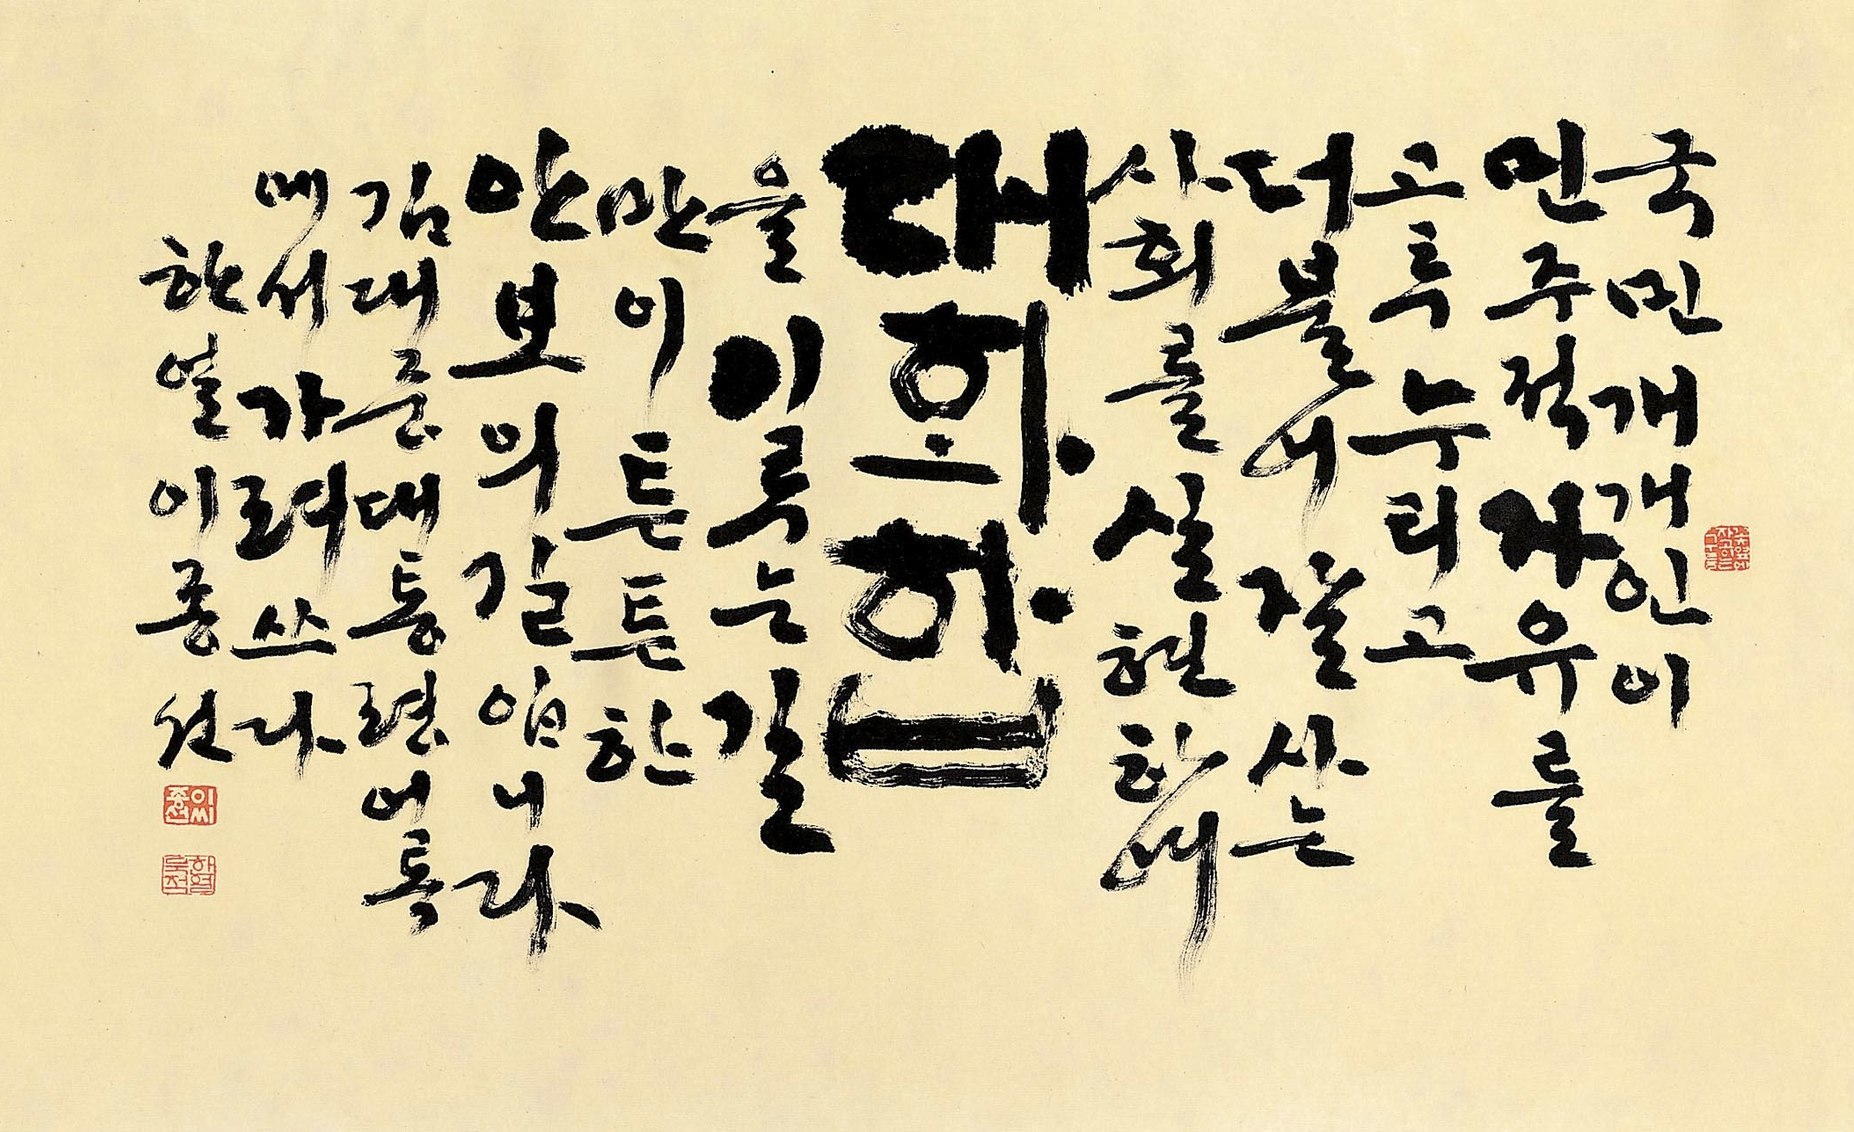 국민개개인이
민주적자유를
고루누리고
더불어잘사는
사회를실현하여
대화합
을이루는길
만이튼튼한
안보의길입니다
김대중대통령어록
에서가려쓰다
한얼이종선
이씨종선